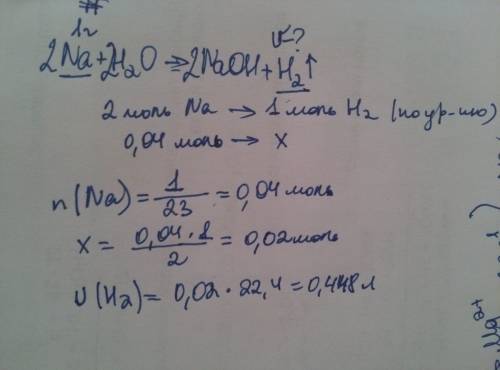 1г
V-?
2Na+2H₂O ⇒ 2NaOH+H₂↑
2 моль Na → 1 моль H₂ (по ур-ию)
0,04 моль → x
n(Na)= 1/23 =0,04 моль
x= 0,04·1/2 = 0,02 моль
υ(H₂)= 0,02·22,4=0,448 л